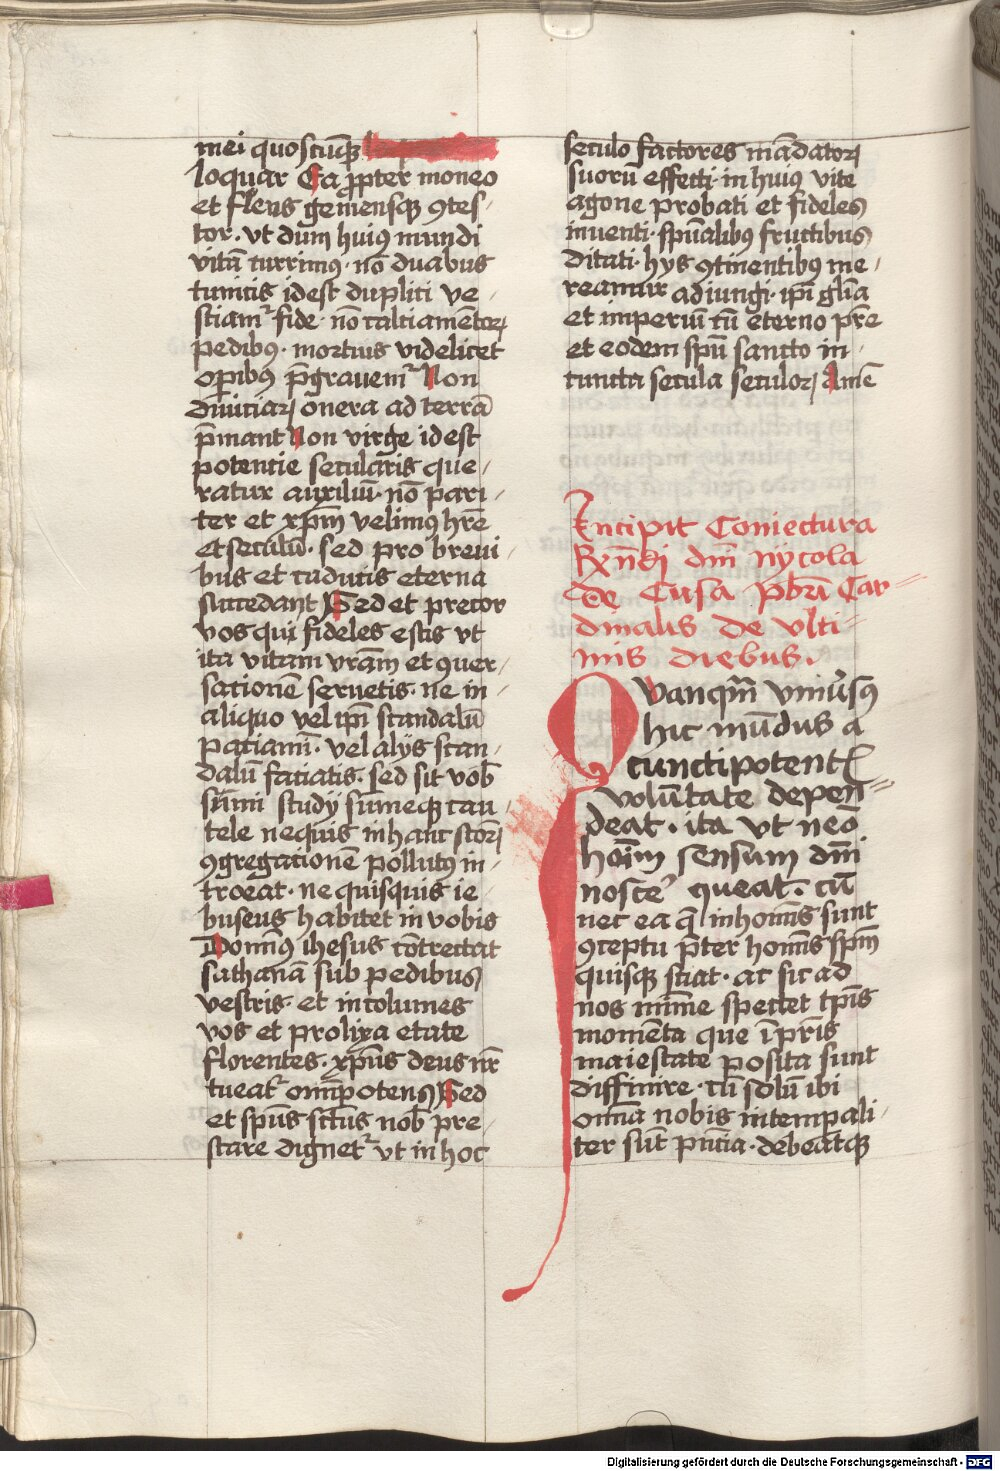 mei quoscūqꝫ
loquar Ea ꝓpter moneo
et flens gemensqꝫ ꝯtes-
tor· vt dum huiꝰ mundi
vitā currimus· nō duabus
tunicis idest duplici ve-
stiamᷣ fide· nō calciamētoꝝ
pedibꝰ· mortuis videlicet
oꝑibꝰ p̄grauemᷣ Non
diuiciaꝝ onera ad terrā
p̄mant Non virge idest
potencie secularis que-
ratur auxiliū· nō pari-
ter et xp̄m velimꝰ hr̄e
et seculū· sed pro breui-
bus et caducis eterna
succedant Sed et precor
vos qui fideles estis vt
ita vitam vrā̄m et ꝯuer-
sationē seruetis· ne in
aliquo vel ip̄i scandalū
paciamī· vel alijs scan-
dalū faciatis· sed sit vob̄
sūmi studij sūmeqꝫ cau-
tele nequis in hanc scōꝝ
ꝯgregationē pollutꝰ in-
troeat· ne quisquis ie-
buseus habitet in vobis
Domīꝰ ihesus cōtrectat
sathanā sub pedibus
vestris· et incolumes
vos et prolixa etate
florentes· xp̄us deus nr̄
tueatᷣ omīpotens Sed
et sp̄us sctūs nob̄ pre-
stare dignetᷣ vt in hoc
seculo factores mādatoꝝ
suorū effecti· in huiꝰ vite
agone probati et fideles
inuenti· sp̄ualibꝰ fructibus
ditati· hys ꝯtinentibꝰ me-
reamur adiungi· ip̄i gl̄ia
et imperiū cū eterno pr̄e
et eodem sp̄u sancto in
cuncta secula seculoꝝ Amē
Incipit Coniectura
Rxn̄di dm̄ nycola
de Cusa p̄brī Car=
dinalis de vlti=
mis diebus.
Qvanqm̄ vniūsꝰ
hic mūdus a
cunctipotentꝭ
volūtate depen=
deat· ita vt neō
hoīm sensum dm̄
noscē queat· cū
nec ea q̄ in homīs sunt
ꝯceptu p̄ter homīs sp̄m
quisqꝫ sciat· ac sic ad
nos mīme spectet tp̄is
momēta que ī pr̄is
maiestate posita sunt
diffinire· cū solū ibi
om̄ia nobis intempali-
ter sūt pn̄cia· debeatqꝫ
Digitalisierung gefördert durch die Deutsche Forschungsgemeinschaft - DFG